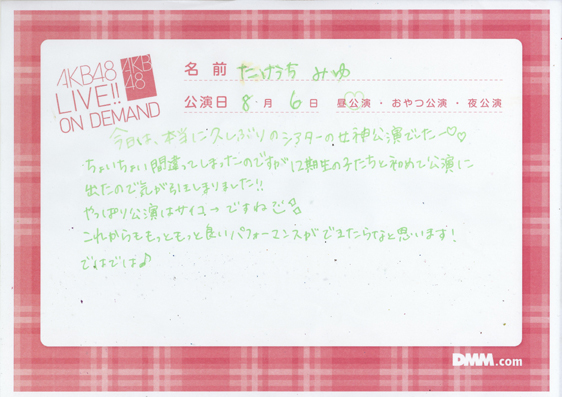 AKB48
LIVE!!
ON DEMAND
AKB
48
名前 たけうち みゆ
公演日 8月6日 昼公演・おやつ公演・夜公演
今日は、本当に久しぶりのシアターの女神公演でしたー♡♡
ちょいちょい間違ってしまったのですが12期生の子たちと初めて公演に
出たので気が引きしまりました!!
やっぱり公演はサイコーですね
これからももっともっと良いパフォーマンスができたらなと思います!
ではでは♪
DMM.com